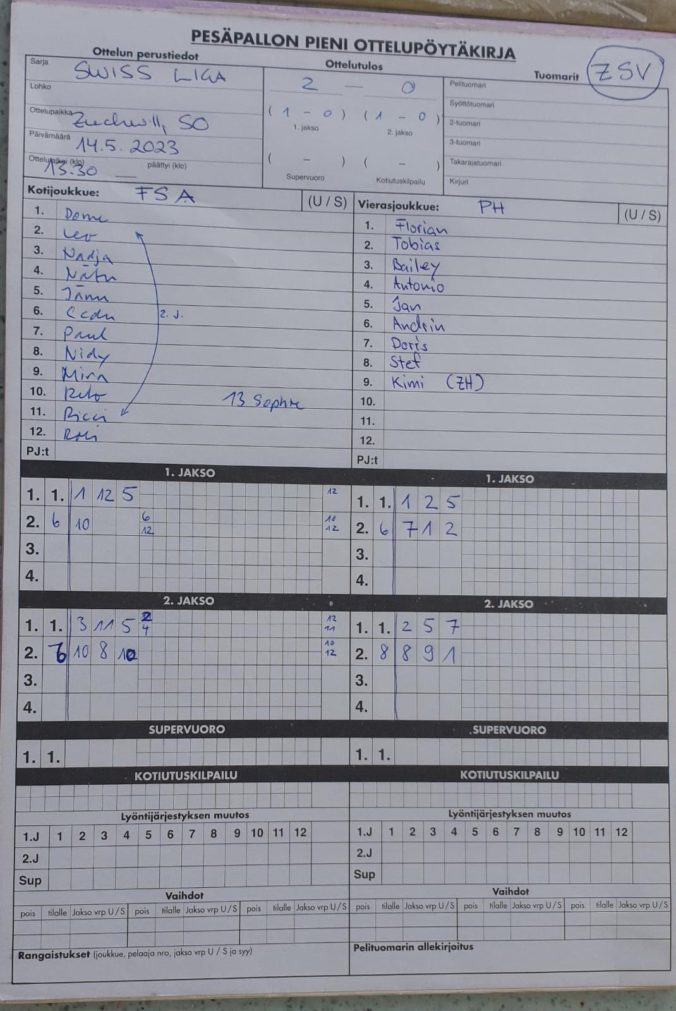 PESÄPALLON PIENI OTTELUPÖYTÄKIRJA
Ottelun perustiedot Ottelutulos Tuomarit ZSV
Sarja SWISS LIGA 2 — 0 Pelituomari
Lohko Syöttötuomari
Ottelupaikka Zuchwil, SO (1 - 0) (1 - 0) 2-tuomari
1. jakso 2. jakso 3-tuomari
Päivämäärä 14.5.2023
13.30 päättyi (klo) ( - ) ( - ) Takarajatuomari
Supervuoro Kotiutuskilpailu Kirjuri
Kotijoukkue: FSA (U / S) Vierasjoukkue: PH (U / S)
1. Dome
2. Leo
3. Nadja
4.
5.
6.
2. J.
7. Paul
8. Nidy
9. Mira
10. Reto 13 Sophie
11. Ricci
12.
PJ:t
1. Florian
2. Tobias
3. Bailey
4. Antonio
5. Jan
6. Andrin
7. Doris
8. Stef
9. Kimi (ZH)
10.
11.
12.
PJ:t
1. JAKSO
1. 1. 1 12 5 12
2. 6 10 6 12 10 12
3.
4.
1. JAKSO
1. 1. 1 2 5
2. 6 7 1 2
3.
4.
2. JAKSO
1. 1. 3 11 5 2 4 12 11
2. 6 10 8 12 10 12
3.
4.
2. JAKSO
1. 1. 2 5 7
2. 8 8 9 1
3.
4.
SUPERVUORO SUPERVUORO
1. 1. 1. 1.
KOTIUTUSKILPAILU KOTIUTUSKILPAILU
Lyöntijärjestyksen muutos Lyöntijärjestyksen muutos
1.J 1 2 3 4 5 6 7 8 9 10 11 12 1.J 1 2 3 4 5 6 7 8 9 10 11 12
2.J 2.J
Sup Sup
Vaihdot Vaihdot
pois tilalle Jakso vrp U / S pois tilalle Jakso vrp U / S pois tilalle Jakso vrp U / S pois tilalle Jakso vrp U / S pois tilalle Jakso vrp U / S pois tilalle Jakso vrp U / S
Rangaistukset (joukkue, pelaaja nro, jakso vrp U / S ja syy) Pelituomarin allekirjoitus